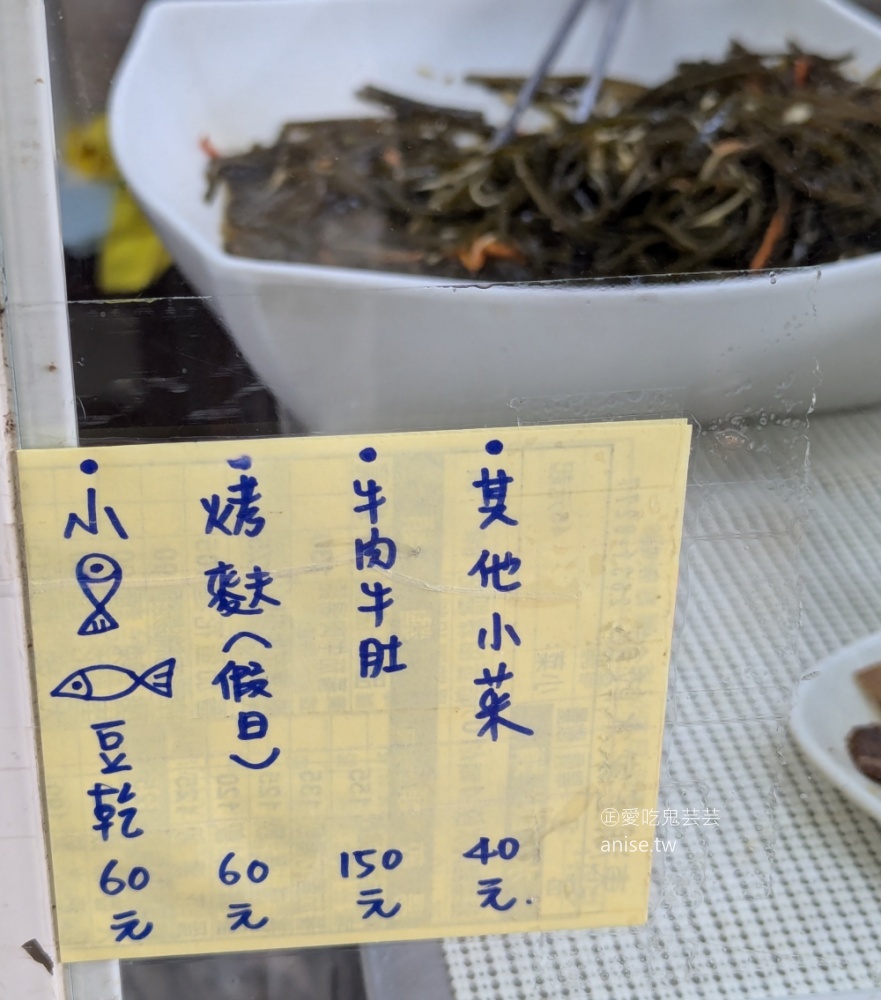 其他小菜 40元.
牛肉牛肚 150元
烤麩(假日) 60元
小 豆乾 60元
㊣愛吃鬼芸芸
anise.tw